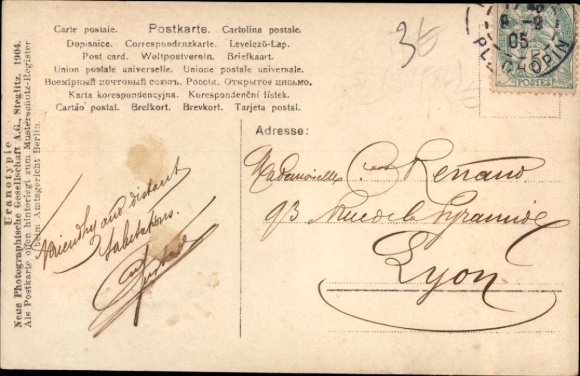 Carte postale. Postkarte. Cartolina postale.
Dopisnice. Correspondenzkarte. Levelező-Lap.
Post card. Weltpostverein. Briefkaart.
Union postale universelle. Unione postale universale.
Всемірный почтовый союзъ. Россія. Открытое письмо.
Karta korespondencyjna. Korespondenční lístek.
Cartão postal. Brefkort. Brevkort. Tarjeta postal.
36
8-8
05
PL. CHOPIN
POSTES
Uranotypie
Neue Photographische Gesellschaft A.G., Steglitz. 1904.
Als Postkarte offen hinterlegt zum Musterschutz-Register
beim Amtsgericht Berlin.
Adresse:
Friendly and distant
Salutations.
Mademoiselle Renaud
93 Rue de la Pyramide
Lyon